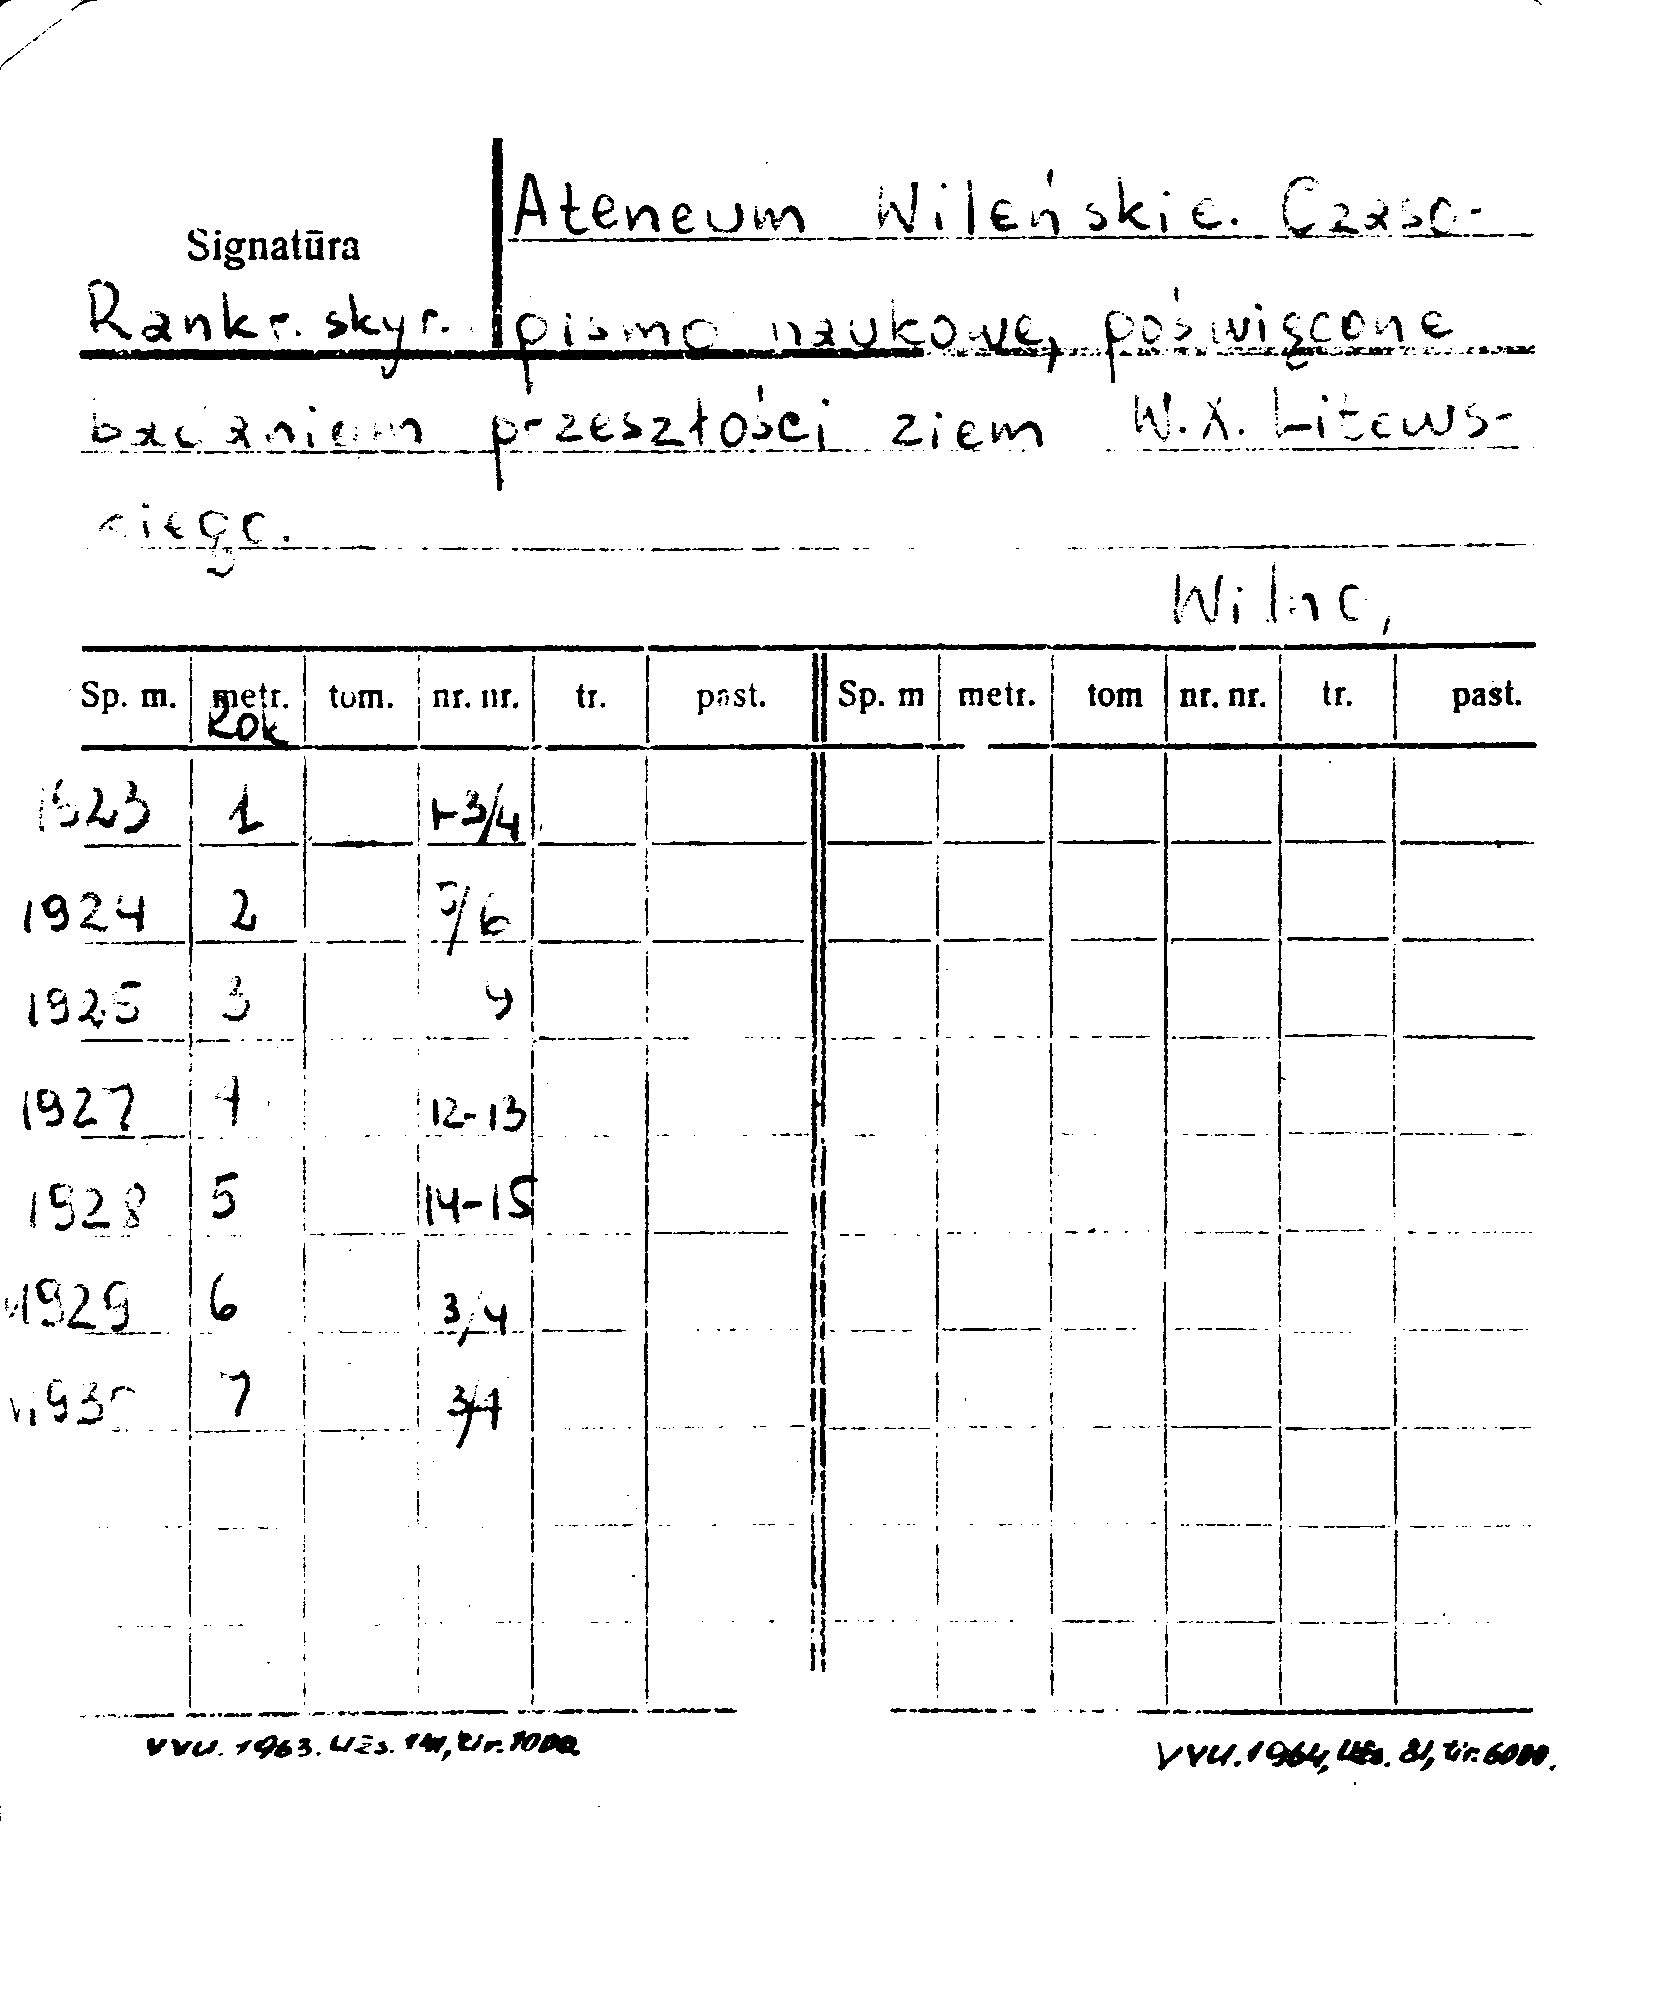 Ateneum Wileńskie. Czaso-
Signatūra
Rankr. skyr. pismo naukowe, poświęcone
badaniom przeszłości ziem W. X. Litews-
kiego.
Wilno,
Sp. m. metr. tom. nr. nr. tr. past. Sp. m metr. tom nr. nr. tr. past.
Rok
1923 1 1-3/4
1924 2 5/6
1925 3 9
1927 4 12-13
1928 5 14-15
1929 6 3/4
1930 7 3/4
VVU. 1963. Užs. 141, tir. 1000 VVU. 1964, Užs. 81, tir. 6000.